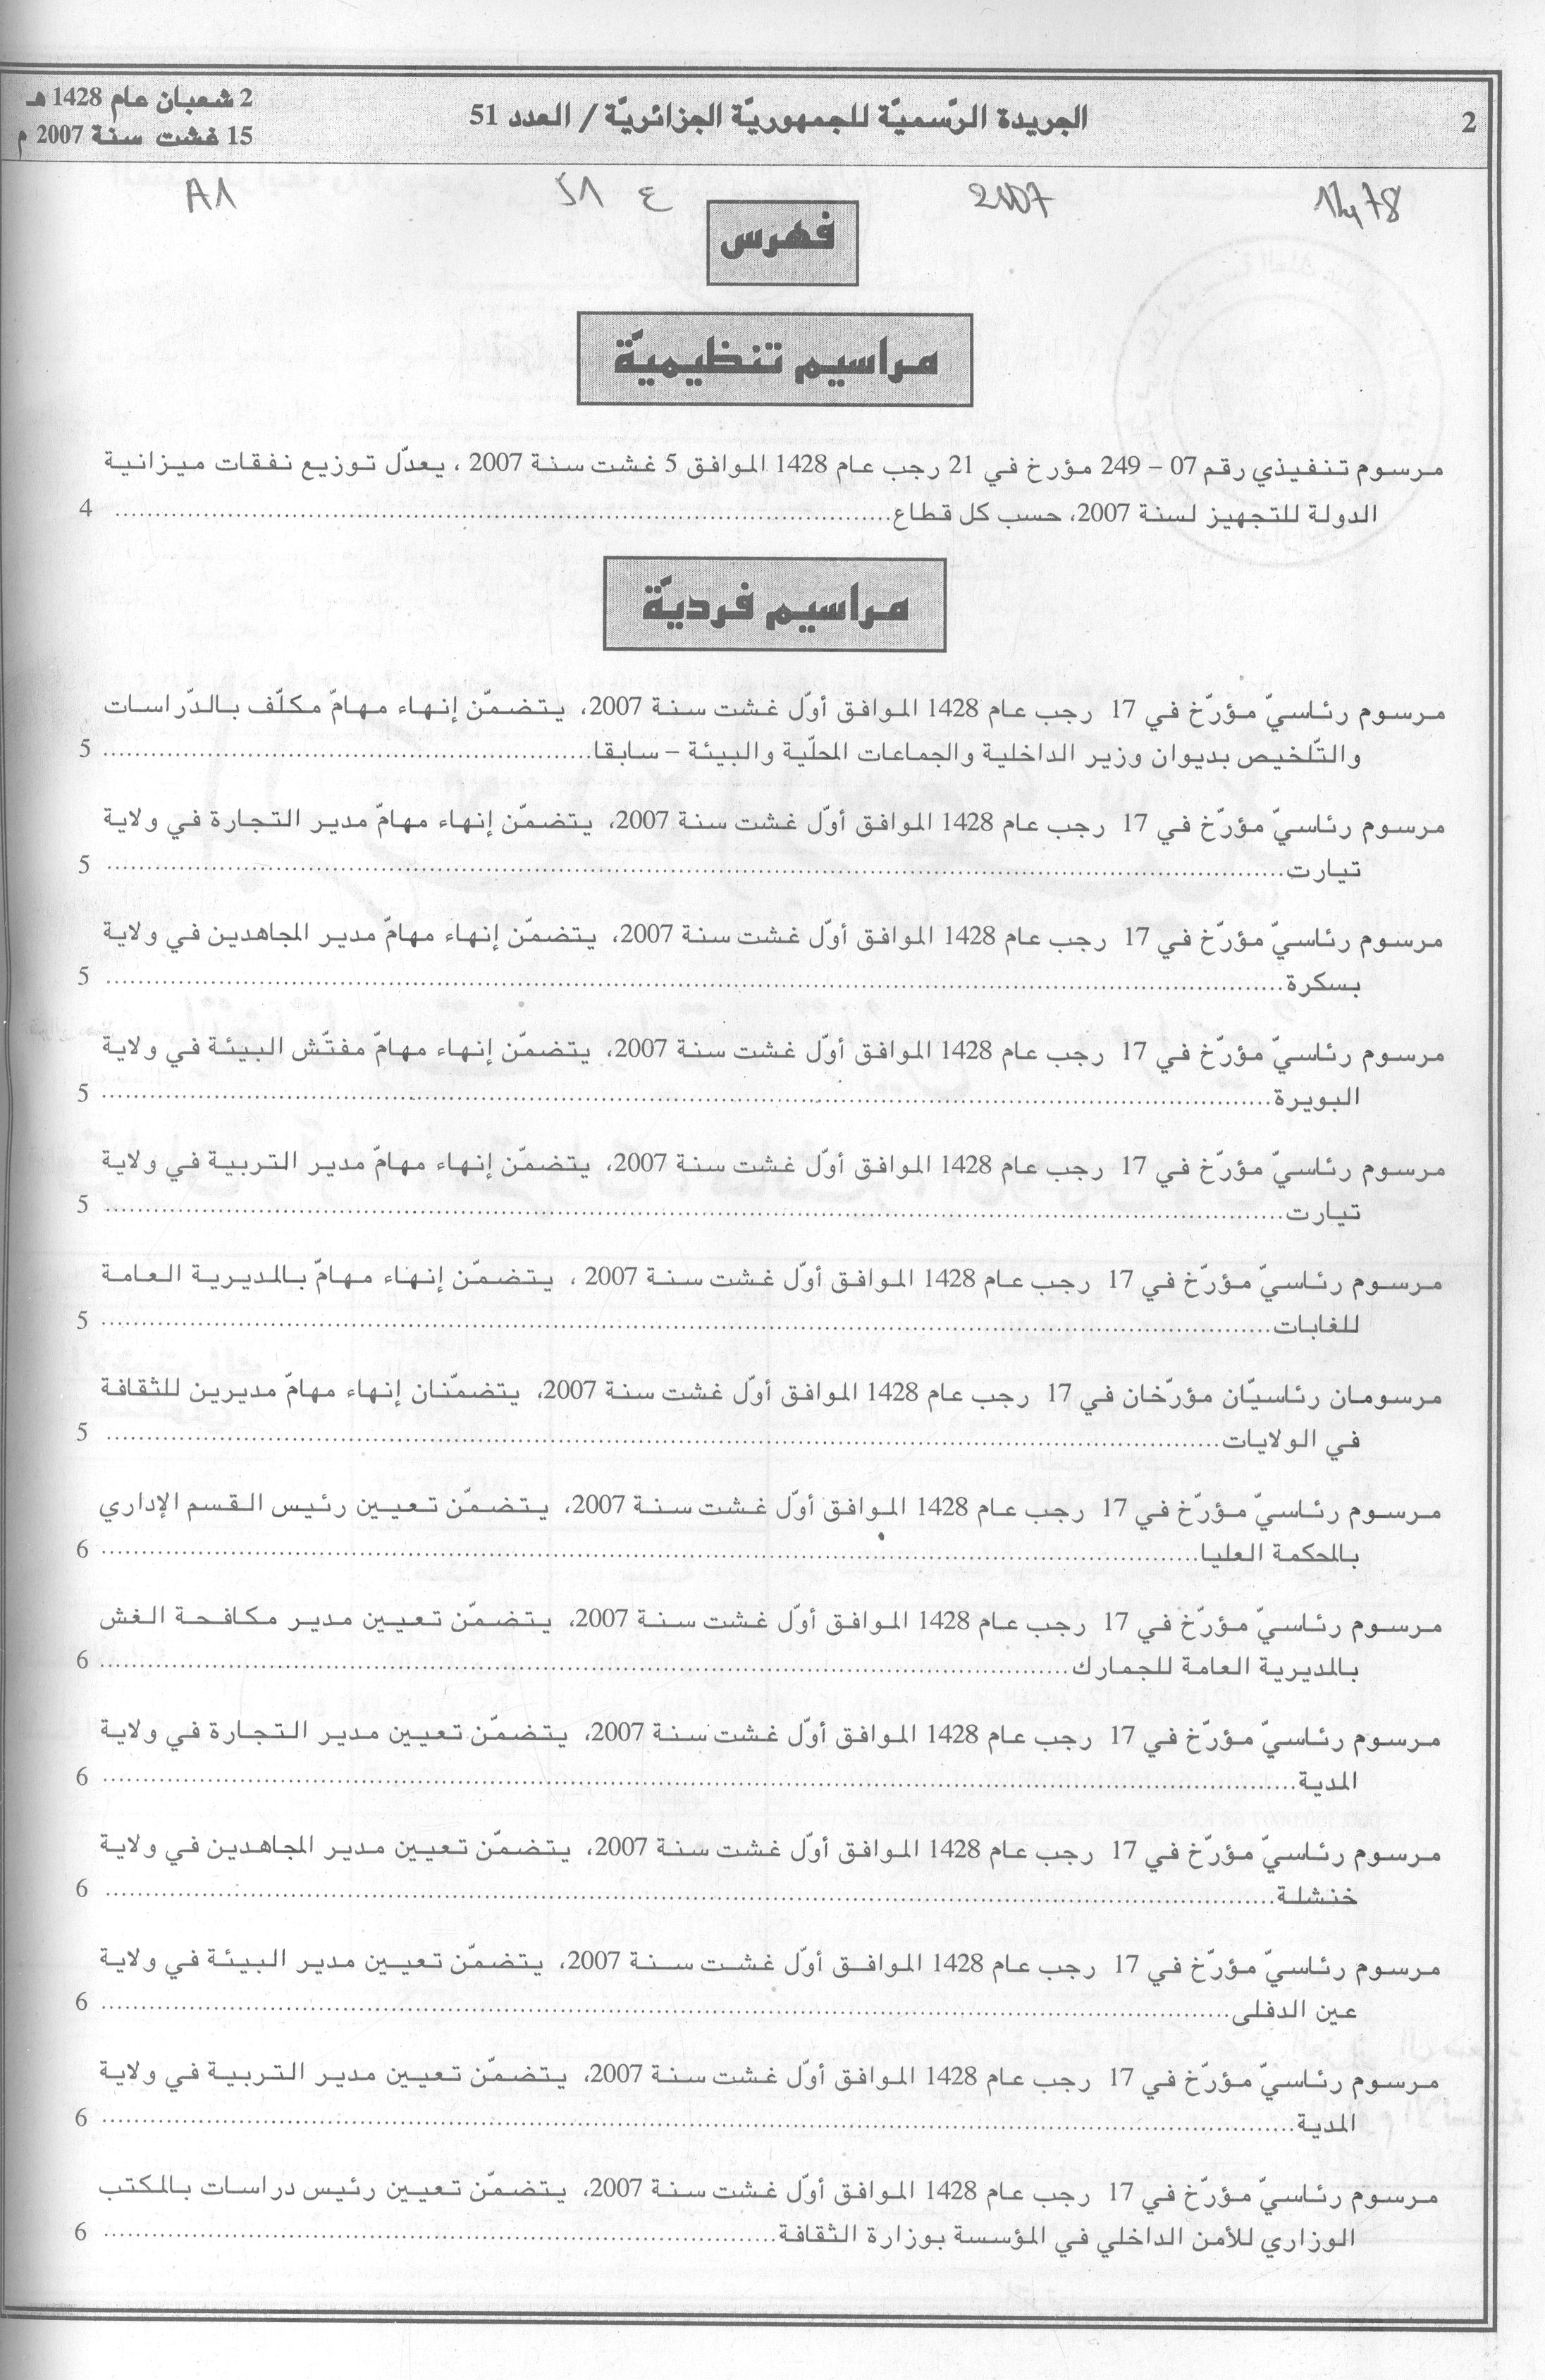 2
الجريدة الرّسميّة للجمهوريّة الجزائريّة / العدد 51
2 شعبان عام 1428 هـ
15 غشت سنة 2007 م
2007
ع 51
A1
فهرس
مراسيم تنظيميّة
مرسوم تنفيذي رقم 07 – 249 مؤرخ في 21 رجب عام 1428 الموافق 5 غشت سنة 2007 ، يعدّل توزيع نفقات ميزانية
الدولة للتجهيز لسنة 2007، حسب كل قطاع........ 4
مراسيم فرديّة
مرسوم رئاسيّ مؤرّخ في 17 رجب عام 1428 الموافق أوّل غشت سنة 2007، يتضمّن إنهاء مهامّ مكلّف بالدّراسات
والتّلخيص بديوان وزير الداخلية والجماعات المحلّية والبيئة – سابقا........ 5
مرسوم رئاسيّ مؤرّخ في 17 رجب عام 1428 الموافق أوّل غشت سنة 2007، يتضمّن إنهاء مهامّ مدير التجارة في ولاية
تيارت........ 5
مرسوم رئاسيّ مؤرّخ في 17 رجب عام 1428 الموافق أوّل غشت سنة 2007، يتضمّن إنهاء مهامّ مدير المجاهدين في ولاية
بسكرة........ 5
مرسوم رئاسيّ مؤرّخ في 17 رجب عام 1428 الموافق أوّل غشت سنة 2007، يتضمّن إنهاء مهامّ مفتّش البيئة في ولاية
البويرة........ 5
مرسوم رئاسيّ مؤرّخ في 17 رجب عام 1428 الموافق أوّل غشت سنة 2007، يتضمّن إنهاء مهامّ مدير التربية في ولاية
تيارت........ 5
مرسوم رئاسيّ مؤرّخ في 17 رجب عام 1428 الموافق أوّل غشت سنة 2007 ، يتضمّن إنهاء مهامّ بالمديرية العامة
للغابات........ 5
مرسومان رئاسيّان مؤرّخان في 17 رجب عام 1428 الموافق أوّل غشت سنة 2007، يتضمّنان إنهاء مهامّ مديرين للثقافة
في الولايات........ 5
مرسوم رئاسيّ مؤرّخ في 17 رجب عام 1428 الموافق أوّل غشت سنة 2007، يتضمّن تعيين رئيس القسم الإداري
بالمحكمة العليا........ 6
مرسوم رئاسيّ مؤرّخ في 17 رجب عام 1428 الموافق أوّل غشت سنة 2007، يتضمّن تعيين مدير مكافحة الغش
بالمديرية العامة للجمارك........ 6
مرسوم رئاسيّ مؤرّخ في 17 رجب عام 1428 الموافق أوّل غشت سنة 2007، يتضمّن تعيين مدير التجارة في ولاية
المدية........ 6
مرسوم رئاسيّ مؤرّخ في 17 رجب عام 1428 الموافق أوّل غشت سنة 2007، يتضمّن تعيين مدير المجاهدين في ولاية
خنشلة........ 6
مرسوم رئاسيّ مؤرّخ في 17 رجب عام 1428 الموافق أوّل غشت سنة 2007، يتضمّن تعيين مدير البيئة في ولاية
عين الدفلى........ 6
مرسوم رئاسيّ مؤرّخ في 17 رجب عام 1428 الموافق أوّل غشت سنة 2007، يتضمّن تعيين مدير التربية في ولاية
المدية........ 6
مرسوم رئاسيّ مؤرّخ في 17 رجب عام 1428 الموافق أوّل غشت سنة 2007، يتضمّن تعيين رئيس دراسات بالمكتب
الوزاري للأمن الداخلي في المؤسسة بوزارة الثقافة........ 6